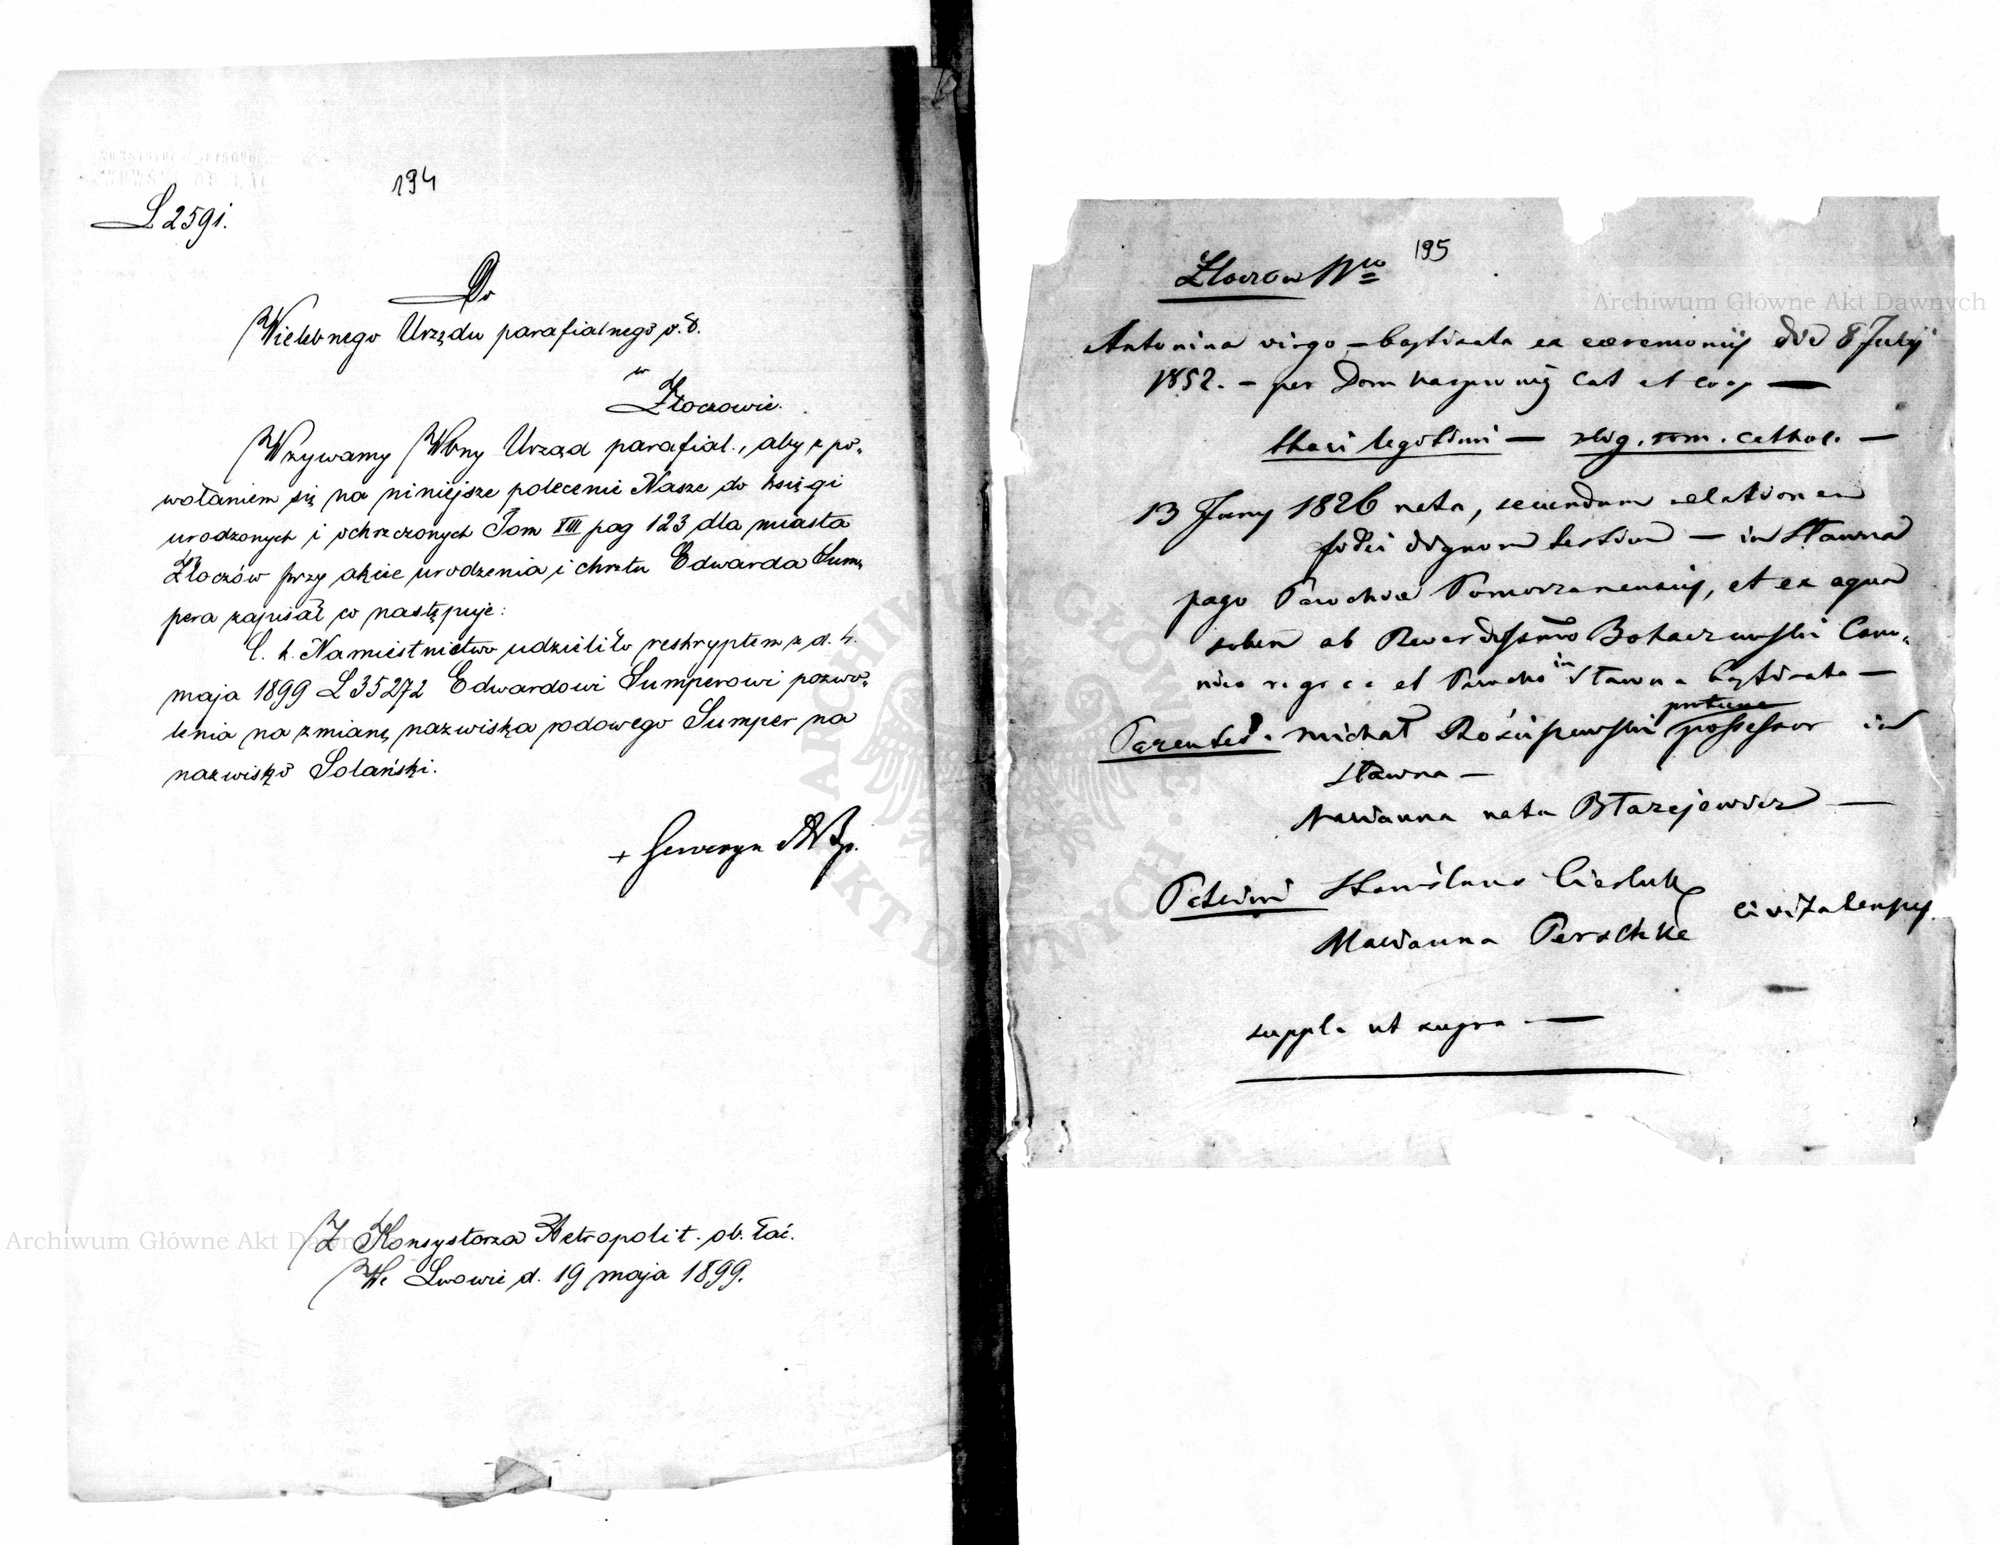 194
L 2591.
Do
Wielebnego Urzędu parafialnego o. ł.
w
Złoczowie.
Wzywamy Wbny Urząd parafial., aby z po-
wołaniem się na niniejsze polecenie Nasze do księgi
urodzonych i ochrzczonych Tom XIII pag 123 dla miasta
Złoczów przy akcie urodzenia i chrztu Edwarda Sum-
pera zapisał co następuje:
C. k. Namiestnictwo udzieliło reskryptem z d. 4.
maja 1899 L 35272 Edwardowi Sumperowi pozwo-
lenia na zmianę nazwiska rodowego Sumper na
nazwisko Solański.
+ Seweryn
Z Konsystorza Metropolit. ob. łać.
We Lwowie d. 19 maja 1899.
195
Złoczów Nro
Antonina virgo – baptisata ex ceremoniis die 8 July
1852. – per Dom coop —
thori legitimi — relig. rom. cathol. —
13 Juny 1826 nata, secundum relationem
fidei dignorum testium — in Sławna
pago Parochiae Pomorzanensis, et ex aqua
solum ab Reverdissimo Bohaczewski Cano-
nico et Parocho in Sławna baptisata —
Parentes. Michał possessor in
Sławna —
Marianna nata Błazejewicz —
Patrini Stanislaus
Marianna Perschke
civitatenses
suppl. ut supra. —
Archiwum Główne Akt Dawnych
Archiwum Główne Akt Dawnych
ARCHIWUM GŁÓWNE AKT DAWNYCH